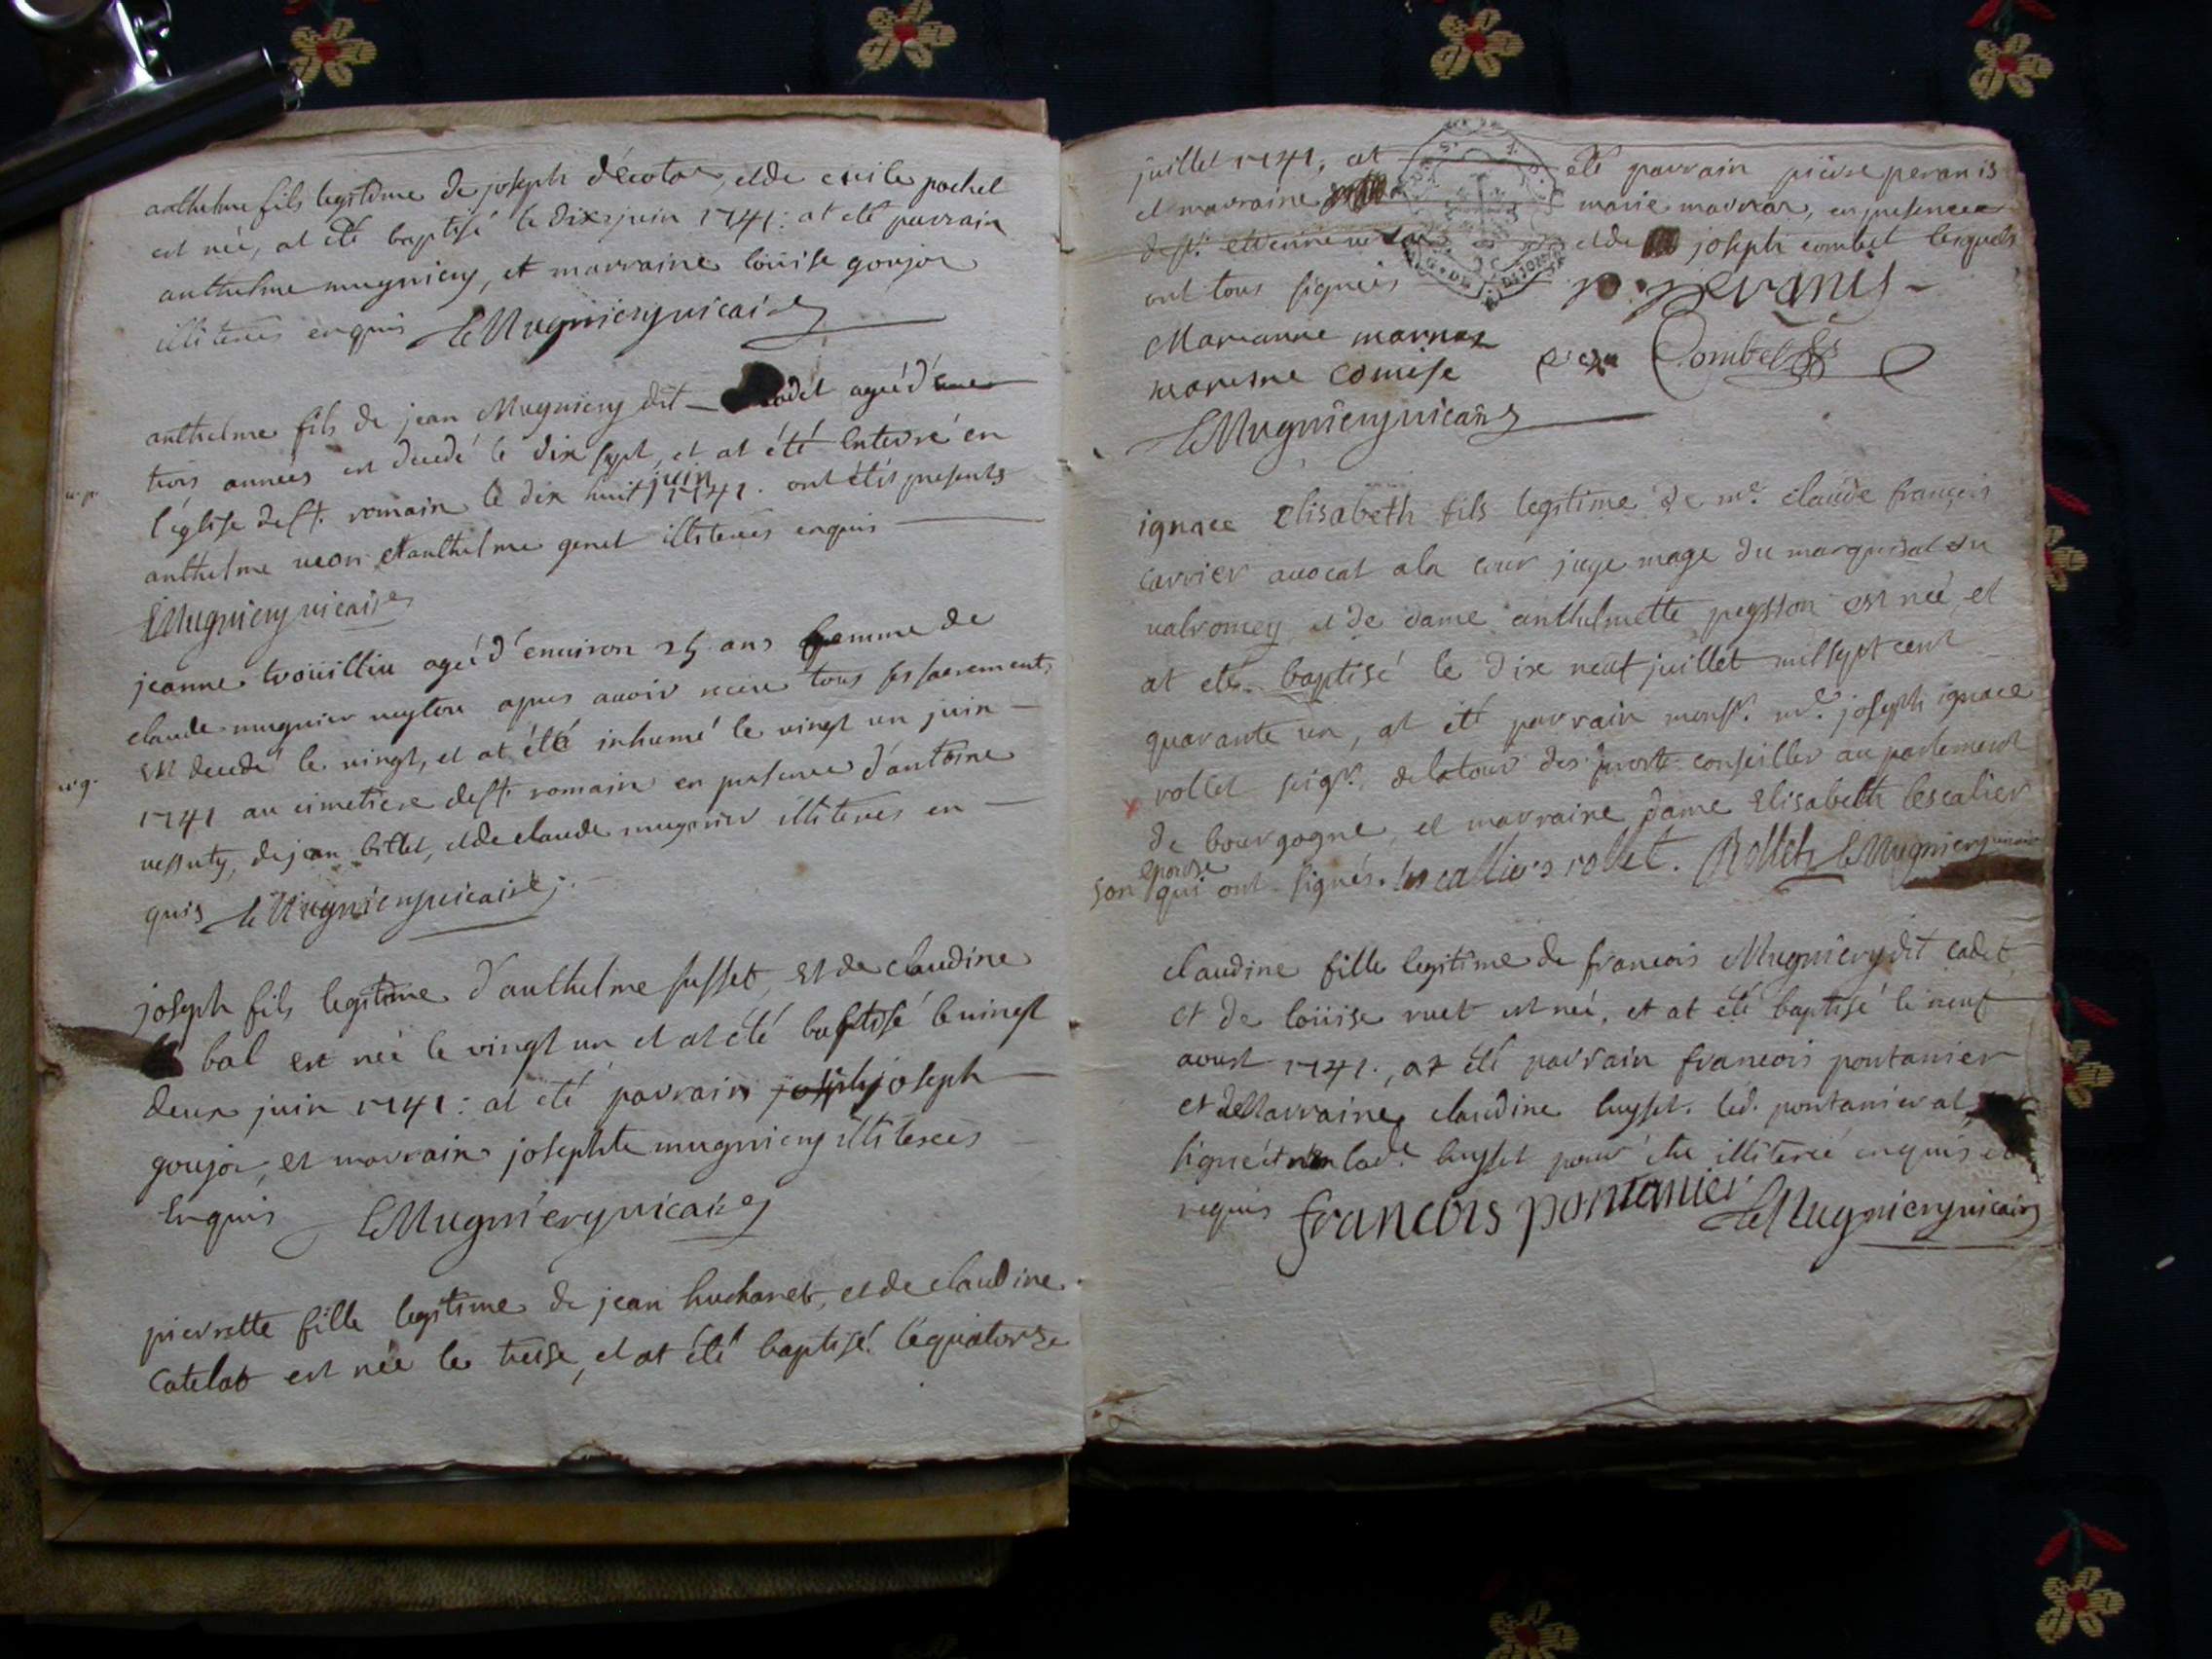 anthelme fils legitime de joseph décotar, et de cecile pochet
est née, at été baptisé le dix juin 1741: at eté parrain
anthelme mugniery, et marraine loüise goujor
illiterés enquis Le Mugniery vicaire
anthelme fils de jean Mugniery dit cadet ageé d'
trois années est decedé le dix sept, et at été enterré en
l'église de st. romain le dix huit juin 1741. ont étés presents
anthelme et anthelme genet illiterés enquis
Le Mugniery vicaire
jeanne troüilliu ageé d'enuiron 25 ans femme de
claude mugnier apres auoir tous ses sacrements,
est decedé le vingt, et at été inhumé le vingt un juin
1741 au cimetiere de st. romain en presence d'antoine
de jean billet, et de claude mugnier illiterés en
quis Le Mugniery vicaire
joseph fils legitime d'anthelme fusset, et de claudine
bal est née le vingt un et at été baptisé le vingt
deux juin 1741: at eté parrain joseph joseph
goujor, et marrain josephte mugniery illiterees
Enquis Le Mugniery vicaire
pierrette fille legitime de jean huchanet, et de claudine
Catelat est née le treise, et at été baptisé le quatorze
juillet 1741, at été parrain pierre peronis
et marraine marie marnar, en presence
de sr. et de joseph combet lesquels
ont tous signeés
Marianne marnas
Combet
Le Mugniery vicaire
ignace Elisabeth fils legitime de me. claude françois
carrier auocat a la cour juge mage du marquisat du
valromey et de dame anthelmette peysson est neé, et
at eté baptisé le dix neuf juillet mil sept cent
quarante un, at été parrain monsr. me. joseph ignace
rollet seigr. de la tour des conseiller au parlement
de bourgogne, et marraine dame Elisabeth lescalier
son epouse qui ont signés. rolet. Rollet Le Mugniery vicaire
claudine fille legitime de francois Mugniery dit cadet
et de loüise ruet est neé, et at été baptisé le neuf
aoust 1741., at été parrain francois pontanier
et de Marraine claudine buysset. led. pontanier at
signé et non lade. buysset pour être illiterée enquis et
requis francois pontanier Le Mugniery vicaire